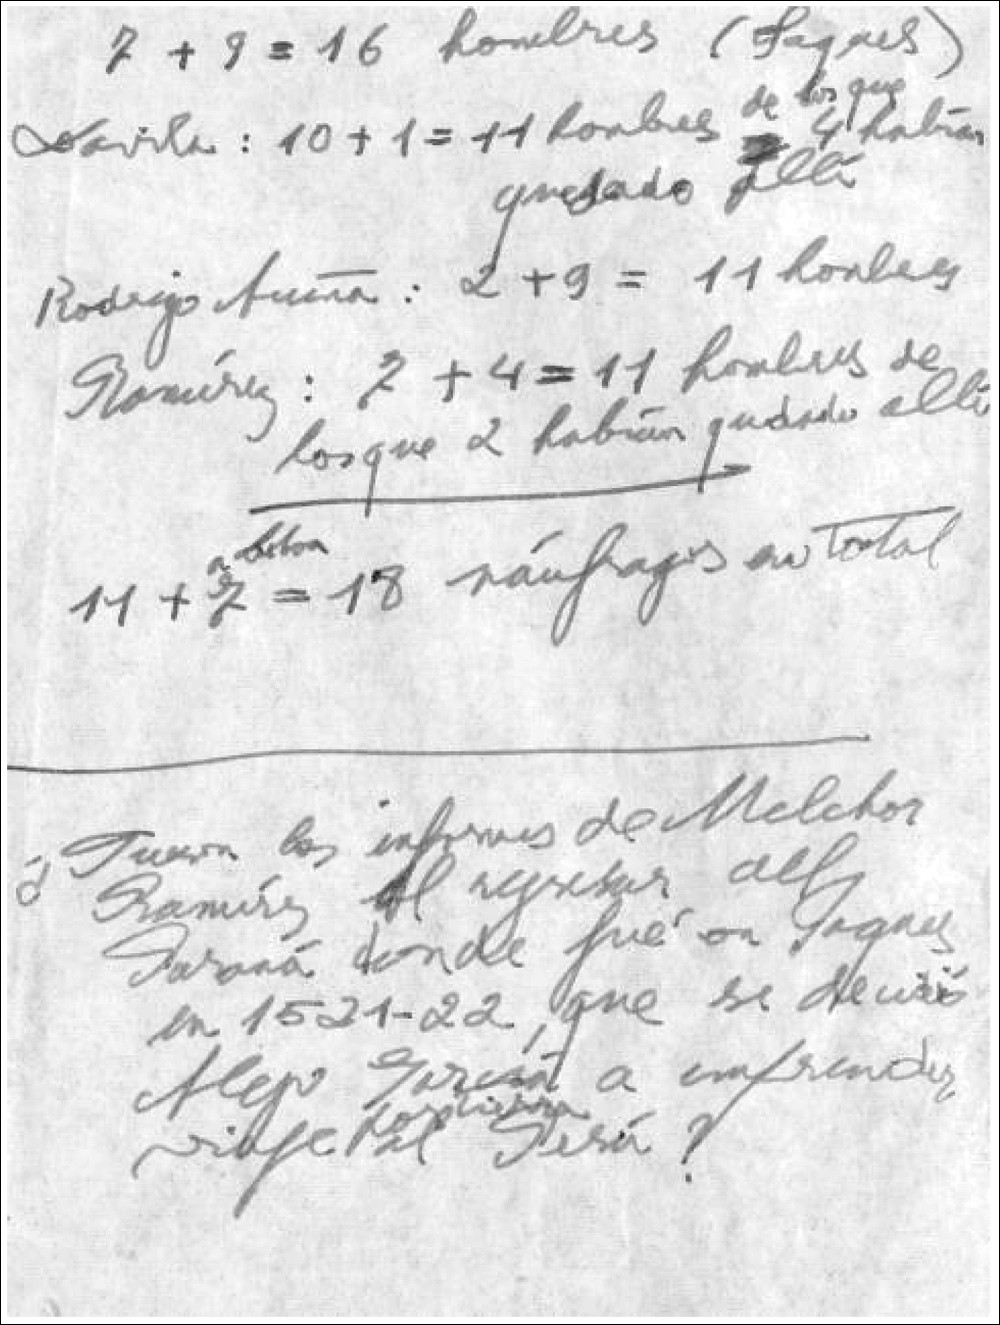 7 + 9 = 16 hombres (Jaques)
de los que
Davila : 10 + 1 = 11 hombres 4 habían
quedado allí
Rodrigo Acuña : 2 + 9 = 11 hombres
Ramírez : 7 + 4 = 11 hombres de
los que 2 habían quedado allí
11 + 7 = 18 náufragos en total
los informes de Melchor
Ramírez al regresar del
Paraná donde fué con Jaques
en 1521-22, que se decidió
Alejo García a emprender
por tierra
viaje al Perú ?